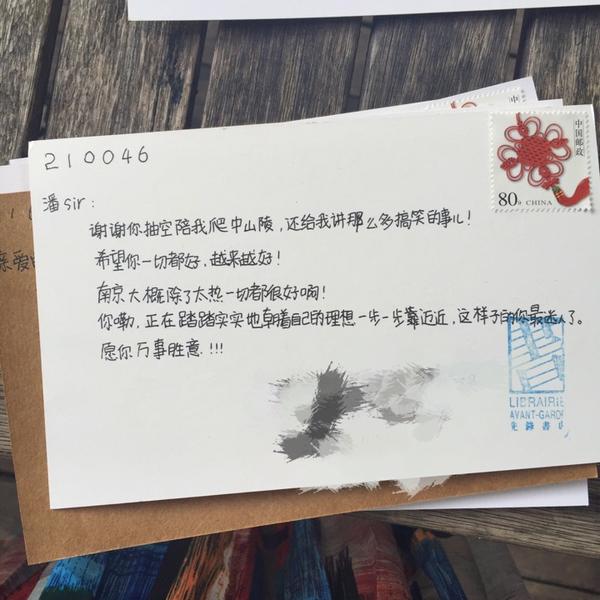 210046
中国邮政
80分 CHINA
潘sir:
谢谢你抽空陪我爬中山陵,还给我讲那么多搞笑的事儿!
希望你一切都好,越来越好!
南京大概除了太热一切都很好啊!
你嘞,正在踏踏实实地朝着自己的理想一步一步靠近近,这样子的你最迷人了。
愿你万事胜意!!!
LIBRAIRIE
AVANT-GARDE
先鋒書店
亲爱